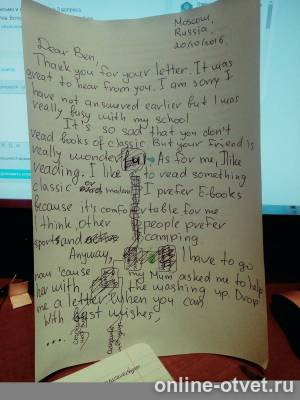 Moscow,
Russia,
20/10/2016.
Dear Ben,
Thank you for your letter. It was
great to hear from you. I am sorry I
have not answered earlier but I was
really busy with my school
It's so sad that you don't
read books of classic. But your friend is
really wonderful. As for me, I like
reading. I like to read something
classic or modern I prefer E-books
because it's comfortable for me
I think, other people prefer
sports and camping
Anyway, I have to go
now 'cause my Mum asked me to help
her with the washing up Drop
me a letter when you can
With best wishes,
....
online-otvet.ru